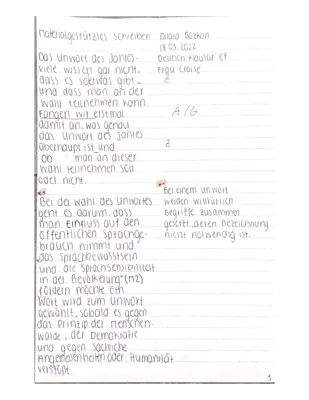 Materialgestütztes Schreiben
Dilara Bozkan
18.05.2022
Deutsch Klausur EF
Frau Craise
Das Unwort des Jahres-
viele wissen gar nicht,
dass es soetwas gibt
und dass man an der
Wahl teilnehmen kann.
Fangen wir erstmal
damit an, was genau
das Unwort des Jahres
überhaupt ist und
ob man an dieser
Wahl teilnehmen soll
oder nicht.
Z
A/G
Z
Bei der Wahl des Unwortes
geht es darum, dass
man Einfluss auf den
öffentlichen Sprachge-
brauch nimmt und
das Sprachbewusstsein
und die Sprachsensibilität
in der Bevölkerung" (M2)
fördern möchte. Ein
Wort wird zum Unwort
gewählt, sobald es gegen
das Prinzip der Menschen-
würde, der Demokratie
und gegen sachliche
Angemessenheiten oder Humanität
verstößt.
Bei einem Unwort
werden willkürlich
Begriffe zusammen
gesetzt, deren Bezeichnung
nicht notwendig ist.
1